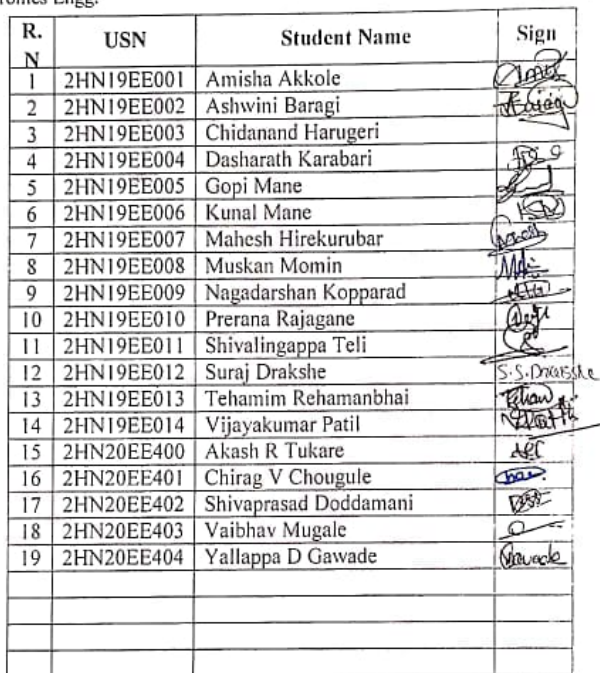 Engg.
R. N USN Student Name Sign
1 2HN19EE001 Amisha Akkole
2 2HN19EE002 Ashwini Baragi
3 2HN19EE003 Chidanand Harugeri
4 2HN19EE004 Dasharath Karabari
5 2HN19EE005 Gopi Mane
6 2HN19EE006 Kunal Mane
7 2HN19EE007 Mahesh Hirekurubar
8 2HN19EE008 Muskan Momin
9 2HN19EE009 Nagadarshan Kopparad
10 2HN19EE010 Prerana Rajagane
11 2HN19EE011 Shivalingappa Teli
12 2HN19EE012 Suraj Drakshe S.S.Drakshe
13 2HN19EE013 Tehamim Rehamanbhai
14 2HN19EE014 Vijayakumar Patil
15 2HN20EE400 Akash R Tukare
16 2HN20EE401 Chirag V Chougule
17 2HN20EE402 Shivaprasad Doddamani
18 2HN20EE403 Vaibhav Mugale
19 2HN20EE404 Yallappa D Gawade